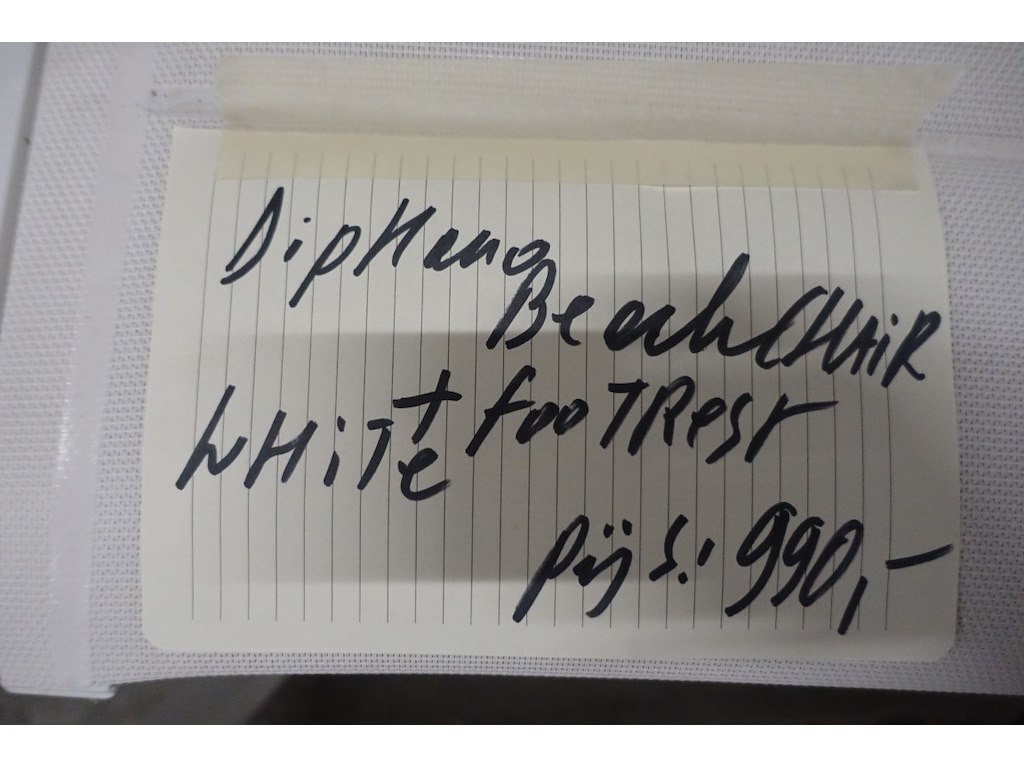 DipHano
BeachCHAIR
WHiTe + fooTRest
prijs: 990,-